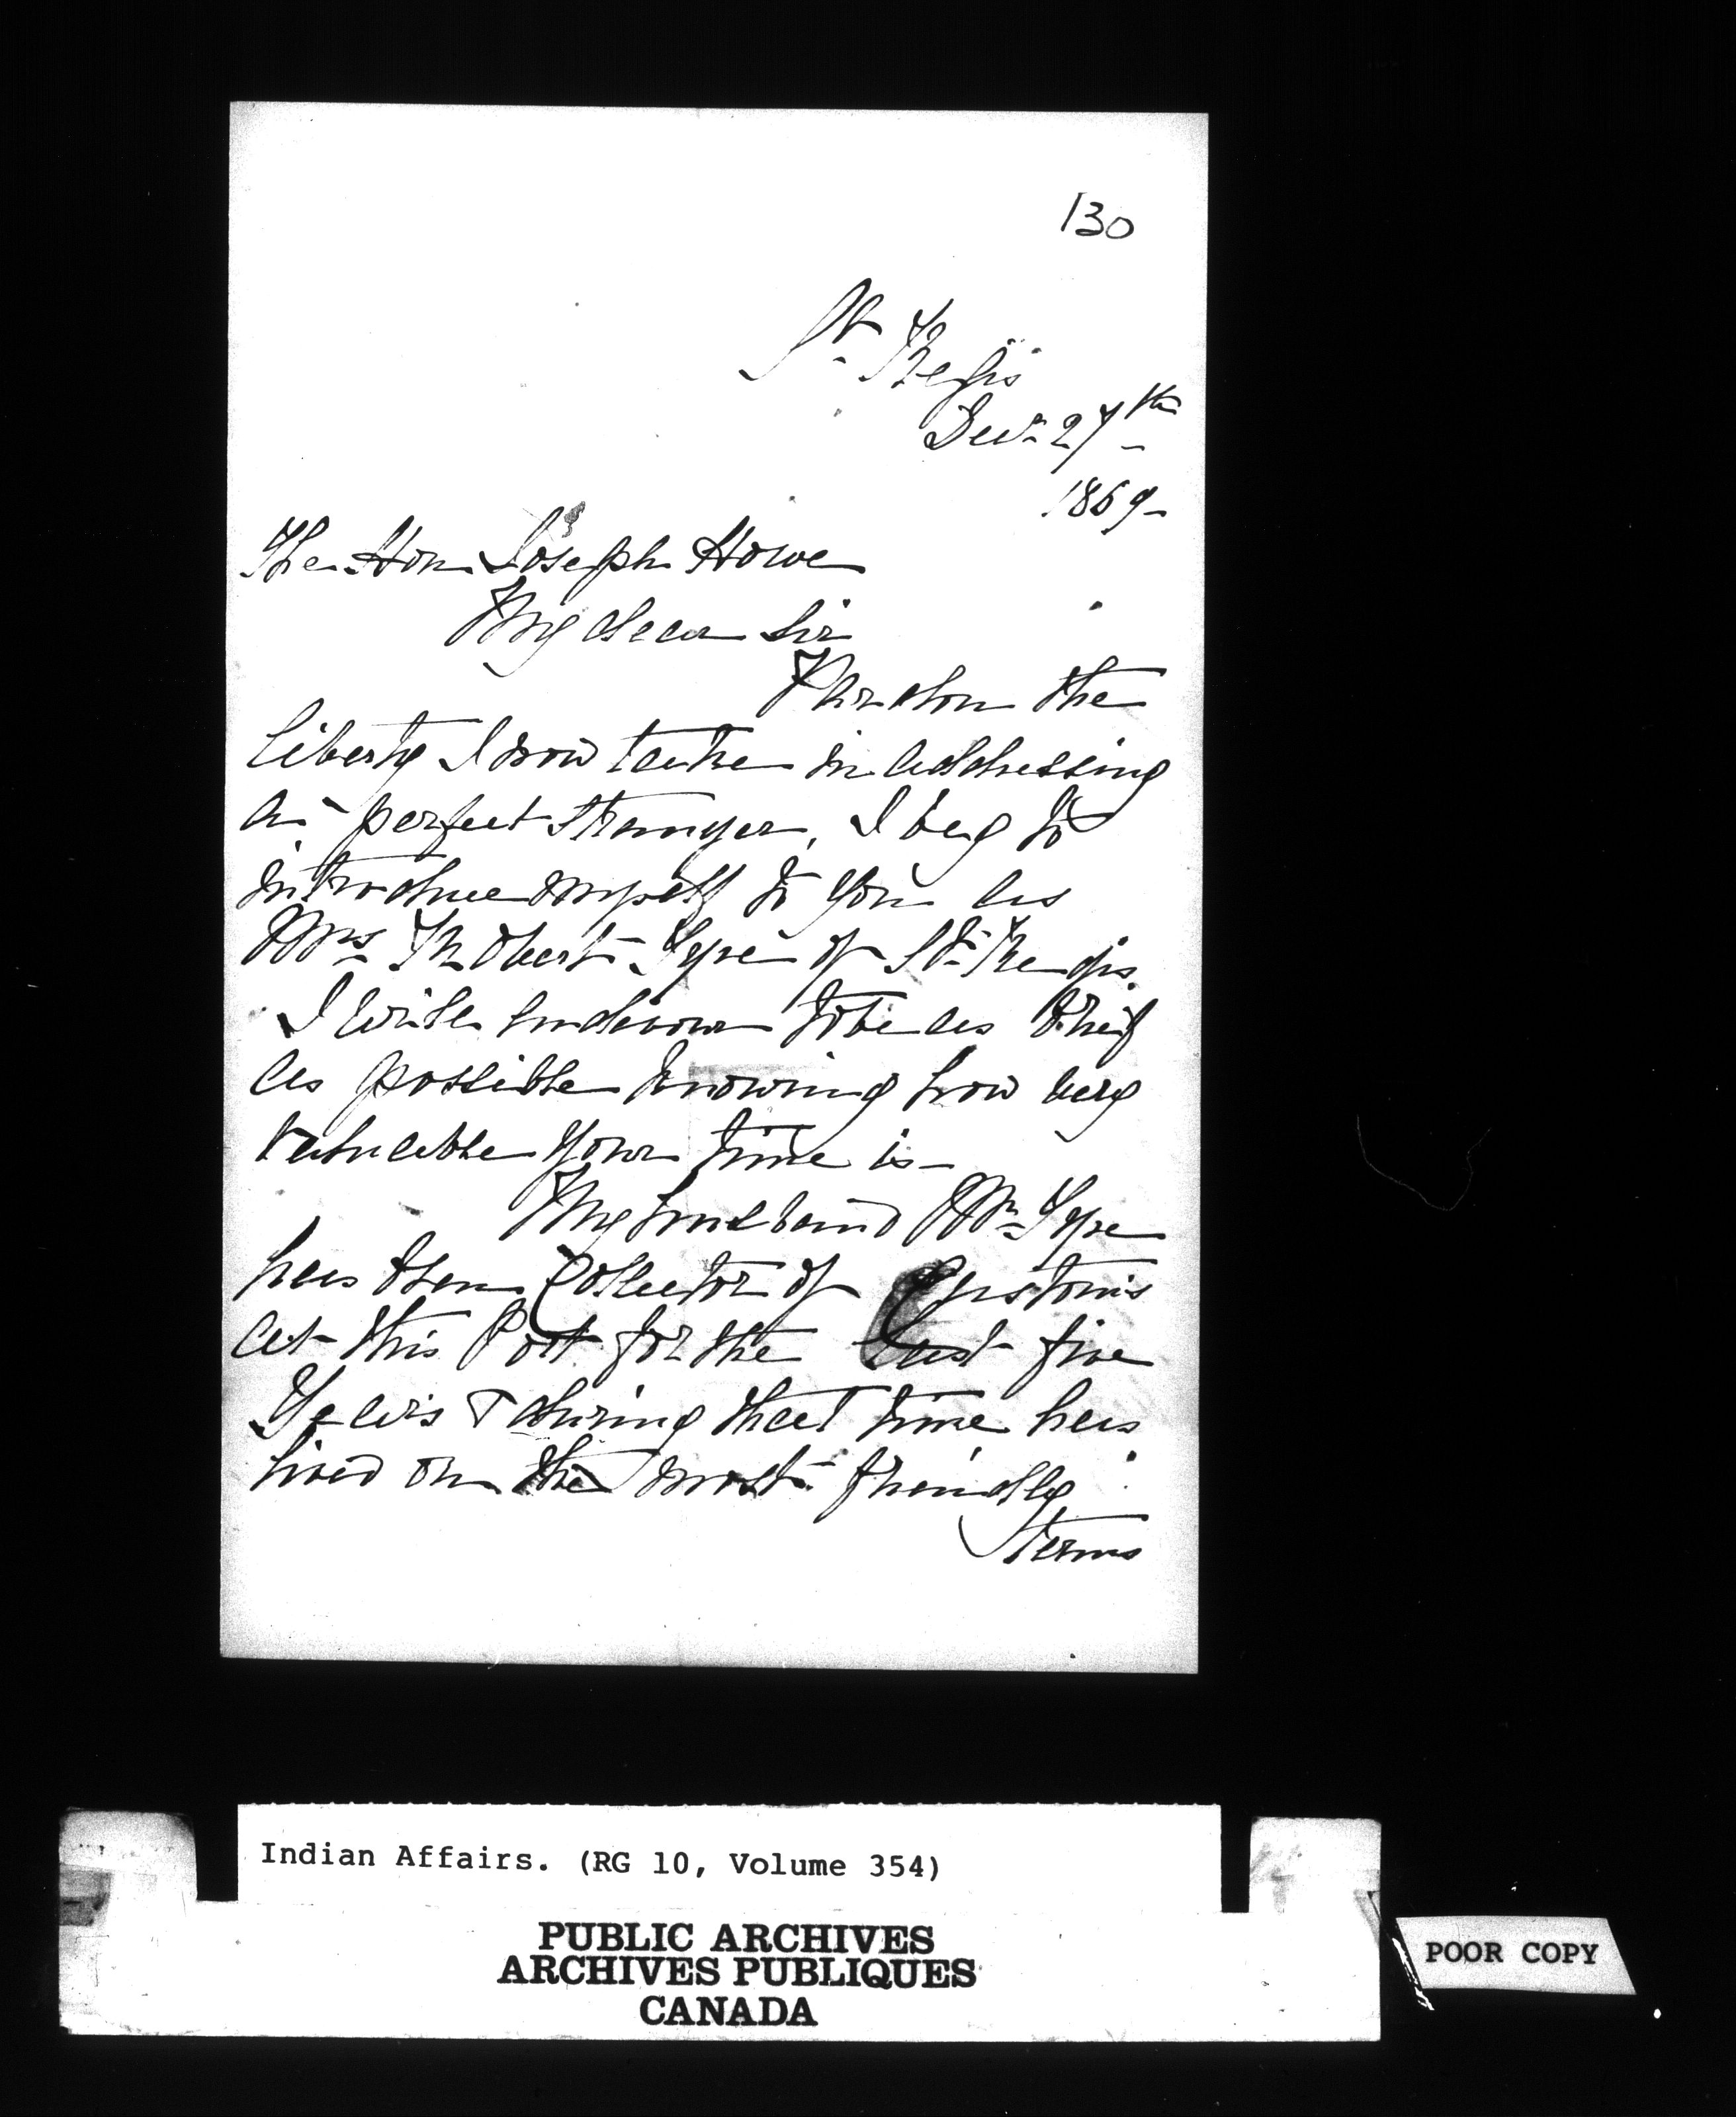 130
St. Regis
Decr. 27th
1869-
The Hon. Joseph Howe
My dear Sir
Pardon the
liberty I now take in addressing
a perfect stranger, I beg to
introduce myself to you as
Mrs Robert Tyre of St. Regis.
I will endevour to be as brief
as possible knowing how very
valuable your time is-
My husband Mr Tyre
has been Collector of Customs
at this Port for the last five
Years & during that time has
lived on the most friendly
terms
Indian Affairs. (RG 10, Volume 354)
PUBLIC ARCHIVES
ARCHIVES PUBLIQUES
CANADA
POOR COPY